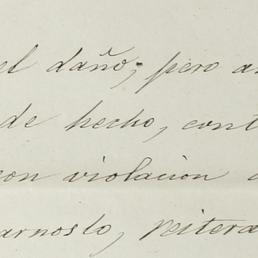 el daño; pero a
de hecho, cont
con violacion
arnoslo, reitera